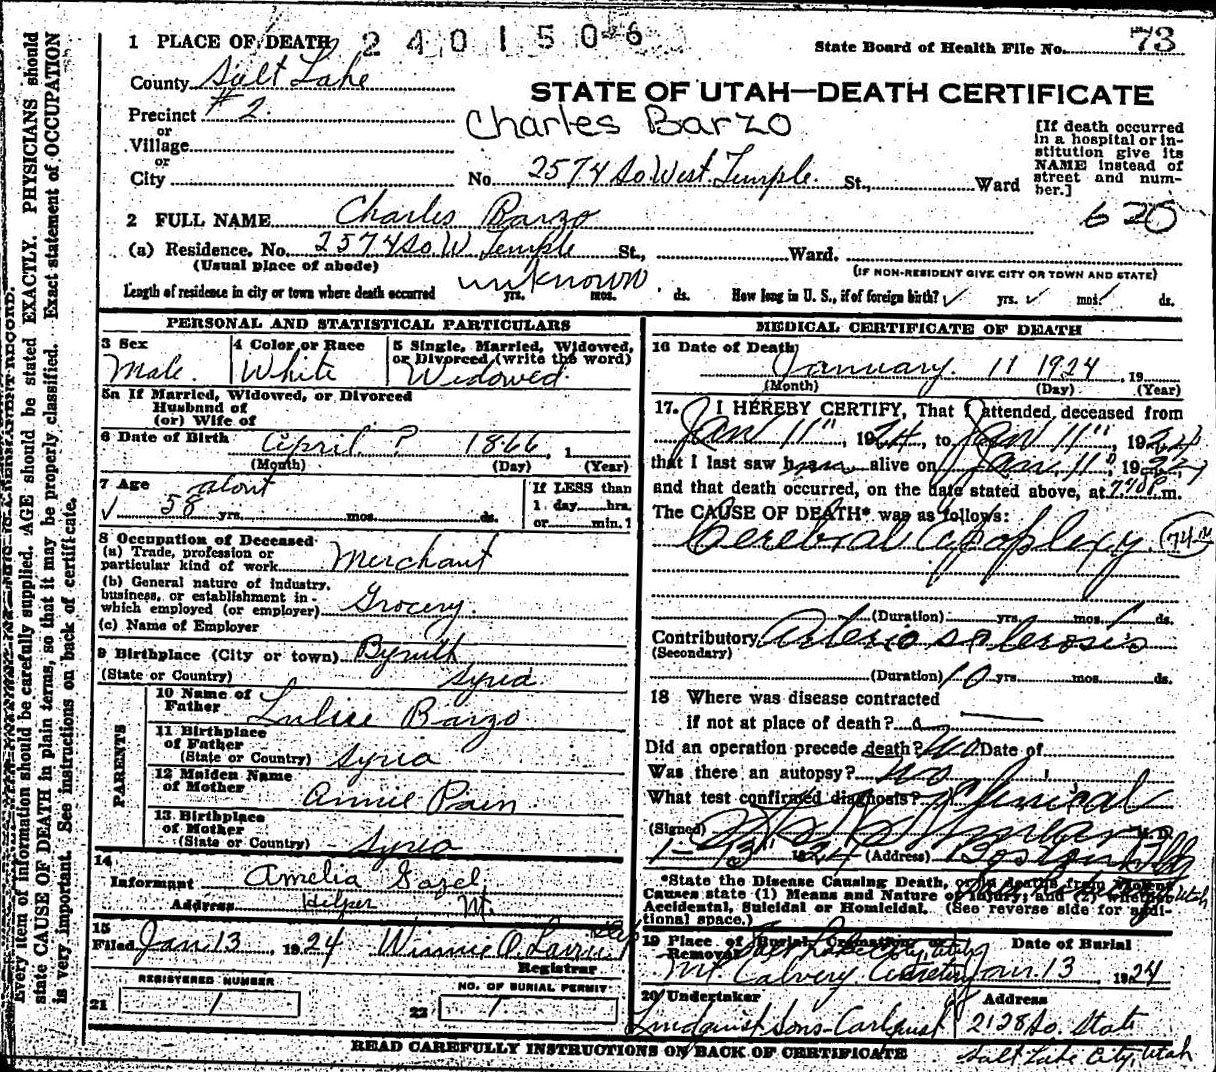 1 PLACE OF DEATH 2 4 0 1 5 0 6
State Board of Health File No. 73
County Salt Lake
STATE OF UTAH—DEATH CERTIFICATE
Precinct # 2.
Charles Barzo
or
Village
or
City
No. 2574 So West Temple. St., Ward
[If death occurred
in a hospital or in-
stitution give its
NAME instead of
street and num-
ber.]
625
2 FULL NAME Charles Barzo
(a) Residence, No. 2574 So W Temple St., Ward.
(Usual place of abode)
(IF NON-RESIDENT GIVE CITY OR TOWN AND STATE)
Length of residence in city or town where death occurred unknown yrs. mos. ds. How long in U. S., if of foreign birth? yrs. mos. ds.
PERSONAL AND STATISTICAL PARTICULARS
3 Sex
Male.
4 Color or Race
White
5 Single, Married, Widowed,
or Divorced (write the word)
Widowed.
5a If Married, Widowed, or Divorced
Husband of
(or) Wife of
6 Date of Birth April ? 1866, 1
(Month) (Day) (Year)
7 Age about
58 yrs. mos. ds.
If LESS than
1 day hrs.
or min. ?
8 Occupation of Deceased
(a) Trade, profession or
particular kind of work Merchant
(b) General nature of industry,
business, or establishment in
which employed (or employer) Grocery.
(c) Name of Employer
9 Birthplace (City or town)
(State or Country) Syria
PARENTS
10 Name of
Father Barzo
11 Birthplace
of Father
(State or Country) Syria
12 Maiden Name
of Mother Annie Pain
13 Birthplace
of Mother
(State or Country) Syria
14
Informant Amelia Gazel
Address Helper Ut.
15
Filed Jan. 13 1924 Winnie O.
Registrar
REGISTERED NUMBER
21 1
NO. OF BURIAL PERMIT
22 1
MEDICAL CERTIFICATE OF DEATH
16 Date of Death
January. 11 1924, 19
(Month) (Day) (Year)
17. I HEREBY CERTIFY, That I attended, deceased from
Jan 11", 1924, to Jan 11", 1924
that I last saw him alive on Jan 11", 1924
and that death occurred, on the date stated above, at m.
The CAUSE OF DEATH* was as follows:
Cerebral Apoplexy.
(Duration) yrs. mos. 1 ds.
Contributory Arteriosclerosis
(Secondary)
(Duration) 10 yrs. mos. ds.
18 Where was disease contracted
if not at place of death?
Did an operation precede death? No Date of
Was there an autopsy? no
What test confirmed diagnosis? Clinical
(Signed) M.D.
1-13" 1924 (Address) Boston
*State the Disease Causing Death, or in deaths from Violent
Causes state (1) Means and Nature of Injury; and (2) whether
Accidental, Suicidal or Homicidal. (See reverse side for addi-
tional space.)
19 Place of Burial, Cremation or
Removal Salt Lake City, Utah
Mt Calvery Cemetery
Date of Burial
Jan. 13, 1924
20 Undertaker
Lindquist-Sons-Carlquist
Address
2128 So. State
Salt Lake City, Utah
READ CAREFULLY INSTRUCTIONS ON BACK OF CERTIFICATE
Every item of information should be carefully supplied. AGE should be stated EXACTLY. PHYSICIANS should
state CAUSE OF DEATH in plain terms, so that it may be properly classified. Exact statement of OCCUPATION
is very important. See instructions on back of certificate.